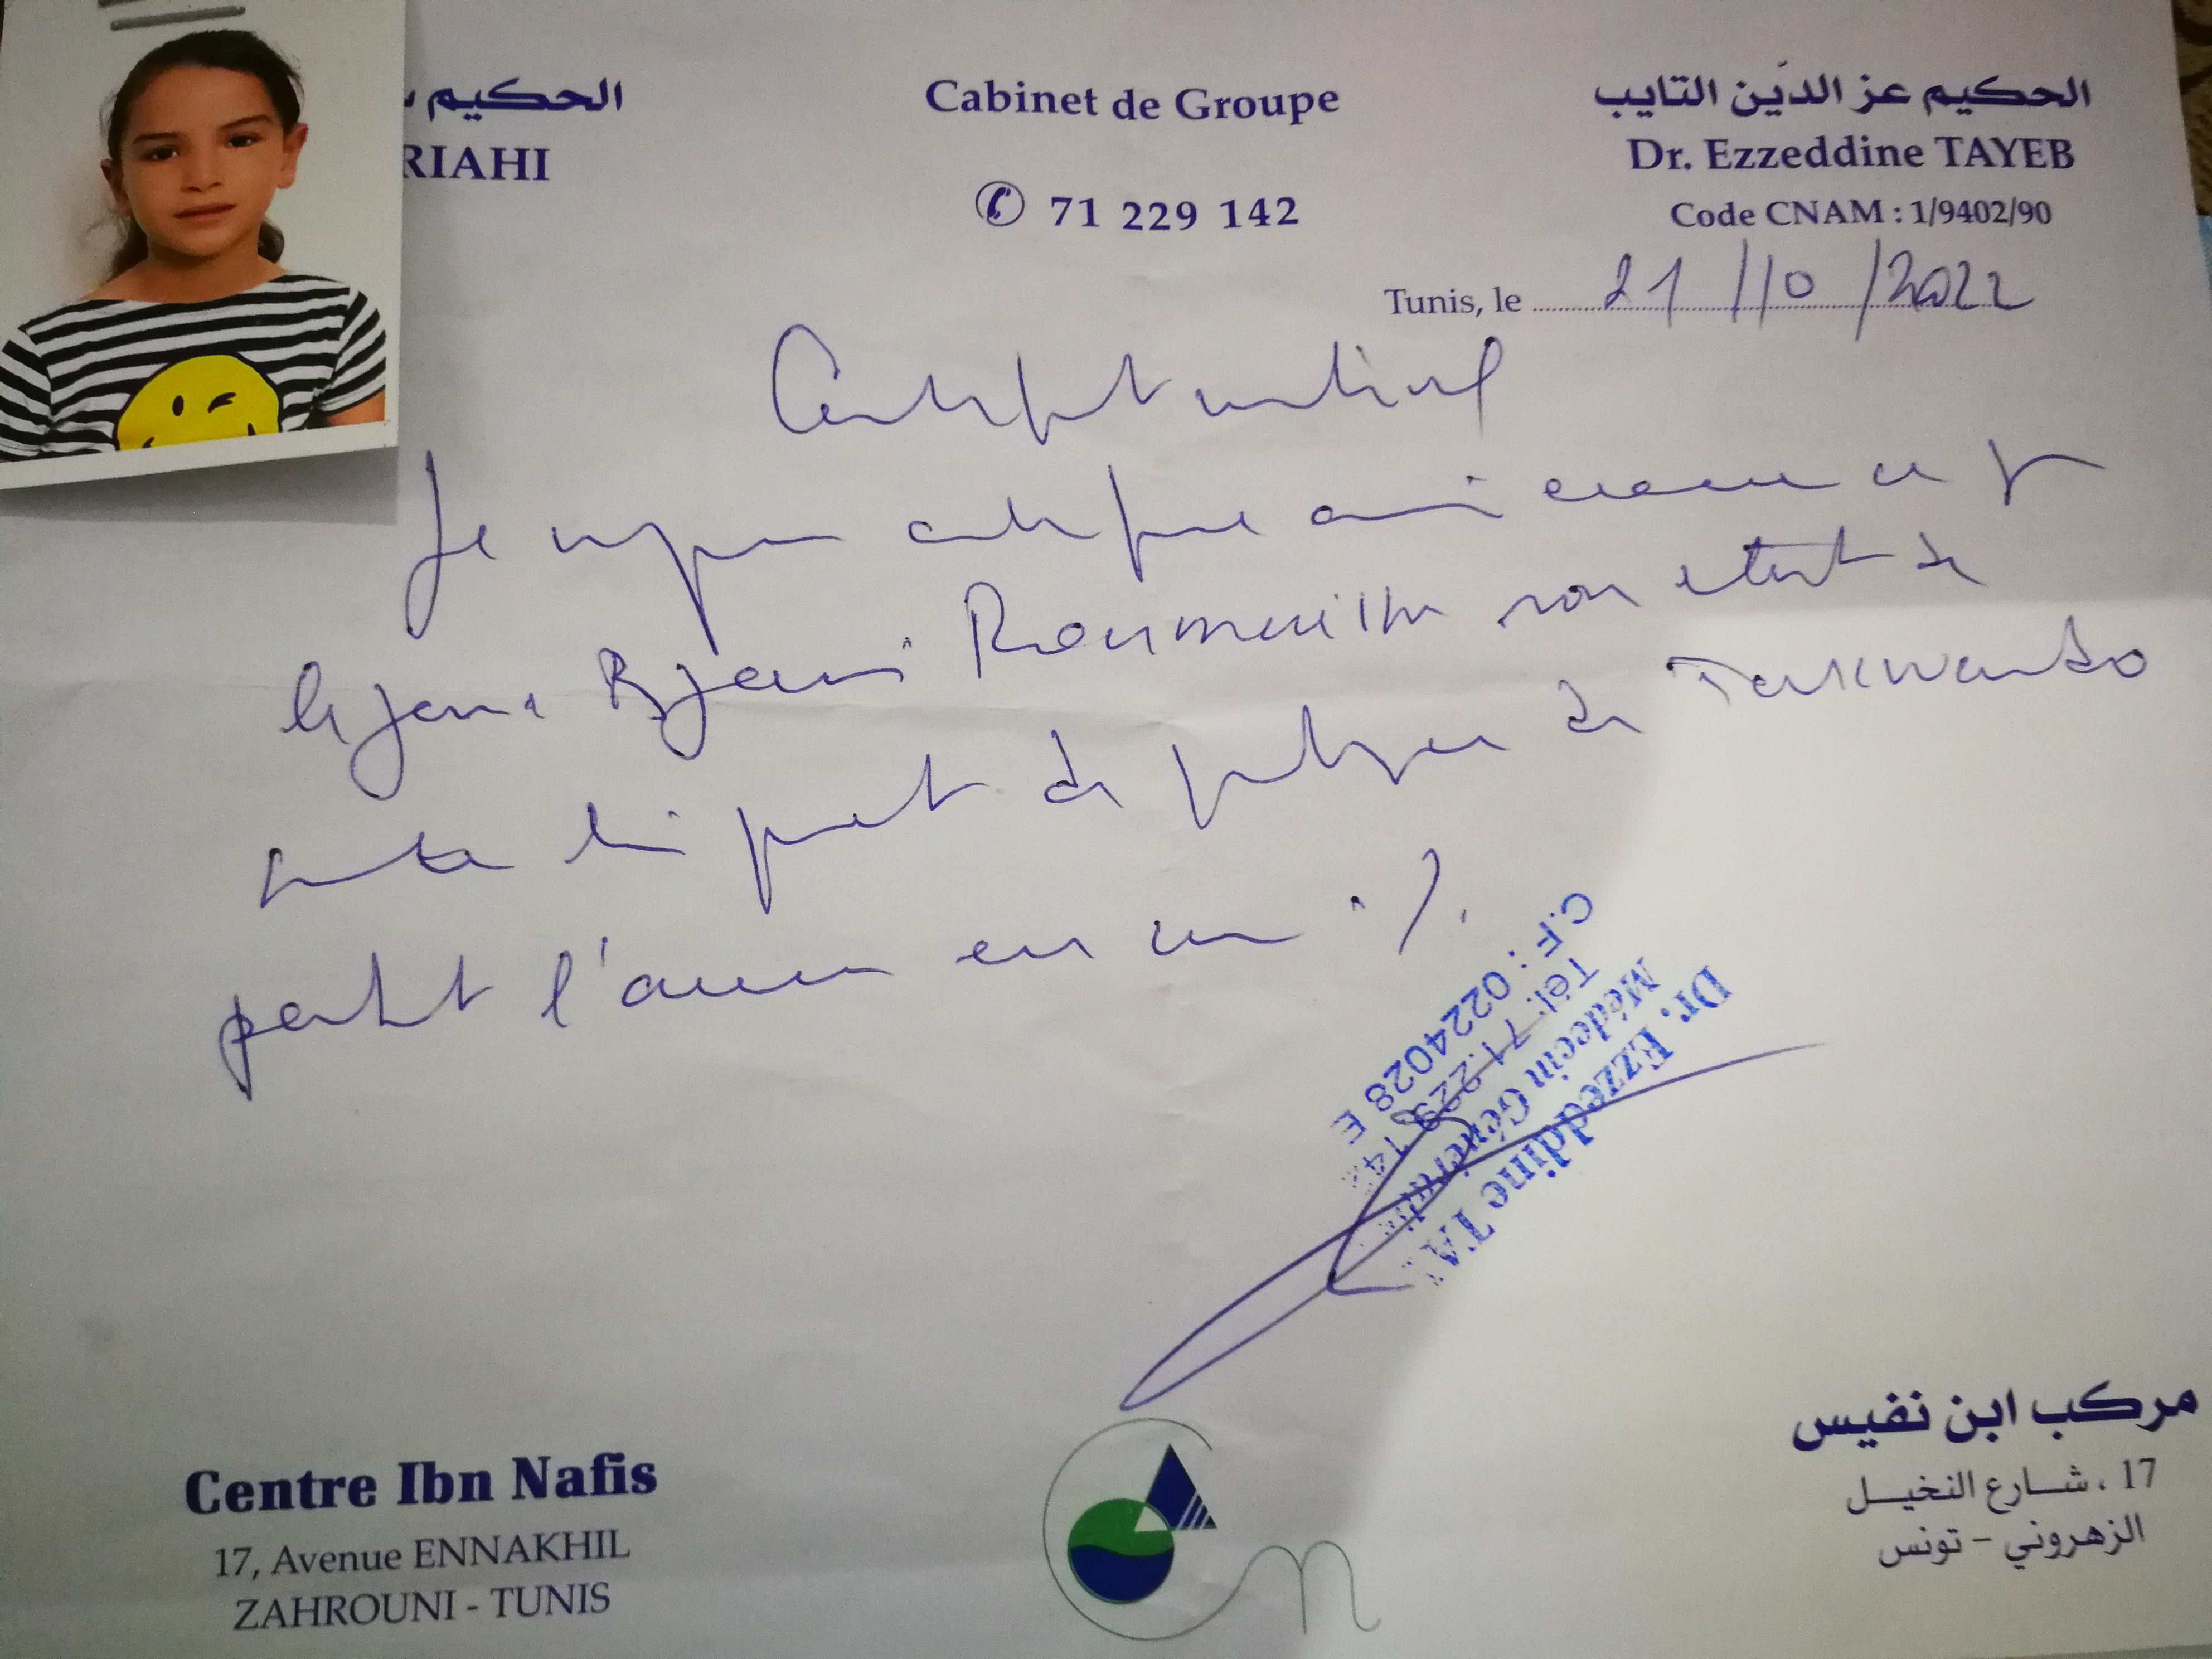 الحكيم
RIAHI
Cabinet de Groupe
71 229 142
الحكيم عز الدين التايب
Dr. Ezzeddine TAYEB
Code CNAM : 1/9402/90
Tunis, le 21/10/2022
Certificat médical
Je soussigné certifie avoir examiné ce jour
la jeune Bjaoui son état de
santé lui permet de pratiquer du Taekwondo
pendant l'année en cours
Dr. Ezzeddine TA
Médecin Généraliste
Tél: 71.229.142
C.F : 0224028 E
Centre Ibn Nafis
17, Avenue ENNAKHIL
ZAHROUNI - TUNIS
مركب ابن نفيس
17 ، شارع النخيل
الزهروني - تونس